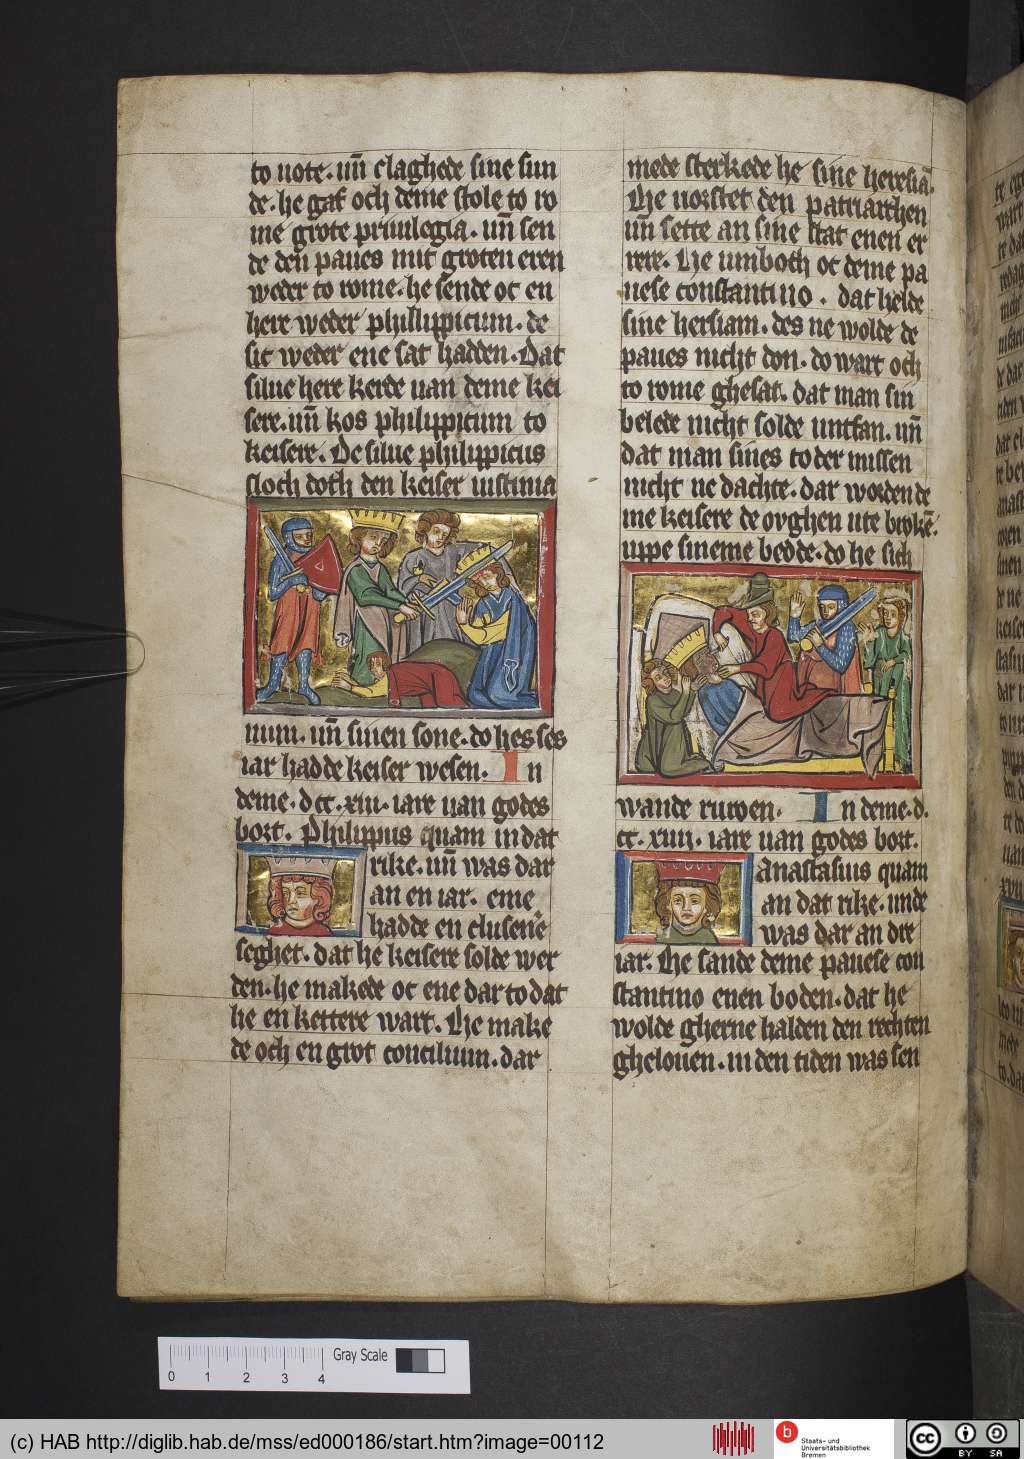 to uote. un̄ claghede sine sun
de. he gaf och deme stole to ro
me grote priuilegia. un̄ sen
de den paues mit groten eren
weder to rome. he sende oc en
here weder phillippicum. de
sic weder ene sat hadden. Dat
silue here kerde uan deme kei
sere. un̄ kos philippicum to
keisere. De silue philippicus
sloch doth den keiser iustinia
num. un̄ sinen sone. do he ses
iar hadde keiser wesen. In
deme. dcc. xiii. iare uan godes
bort. Philippus quam in dat
rike. un̄ was dar
an en iar. eme
hadde en clusene
seghet. dat he keisere solde wer
den. he makede oc ene dar to dat
he en kettere wart. He make
de och en grot concilium. dar
mede sterkede he sine heresiā.
He uorstet den patriarchen
un̄ sette an sine stat enen er
rere. He umboth oc deme pa
uese constantino. dat helde
sine hersiam. des ne wolde de
paues nicht don. do wart och
to rome ghesat. dat man sin
belede nicht solde untfan. un̄
dat man sines to der missen
nicht ne dachte. dar worden de
me keisere de oughen ute brokē.
uppe sineme bedde. do he sich
wande ruwen. In deme. d.
cc. xiiii. iare uan godes bort.
Anastasius quam
an dat rike. unde
was dar an dre
iar. He sande deme pauese con
stantino enen boden. dat he
wolde gherne halden den rechten
ghelouen. in den tiden was sen
Gray Scale
0 1 2 3 4
(c) HAB http://diglib.hab.de/mss/ed000186/start.htm?image=00112
b
Staats- und
Universitätsbibliothek
Bremen
cc
BY SA